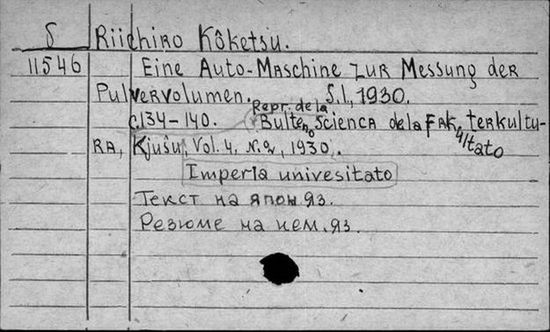 S Riichiro Kôketsu.
11546 Eine Auto-Maschine zur Messung der
Pulvervolumen. S.l., 1930.
Repr. de la
c.134-140. Bulteno Scienca de la Fak. terkultu-
ultato
RA, Kjuŝu, Vol. 4, N.2, 1930.
Imperia univesitato
Текст на япон.яз.
Резюме на нем.яз.